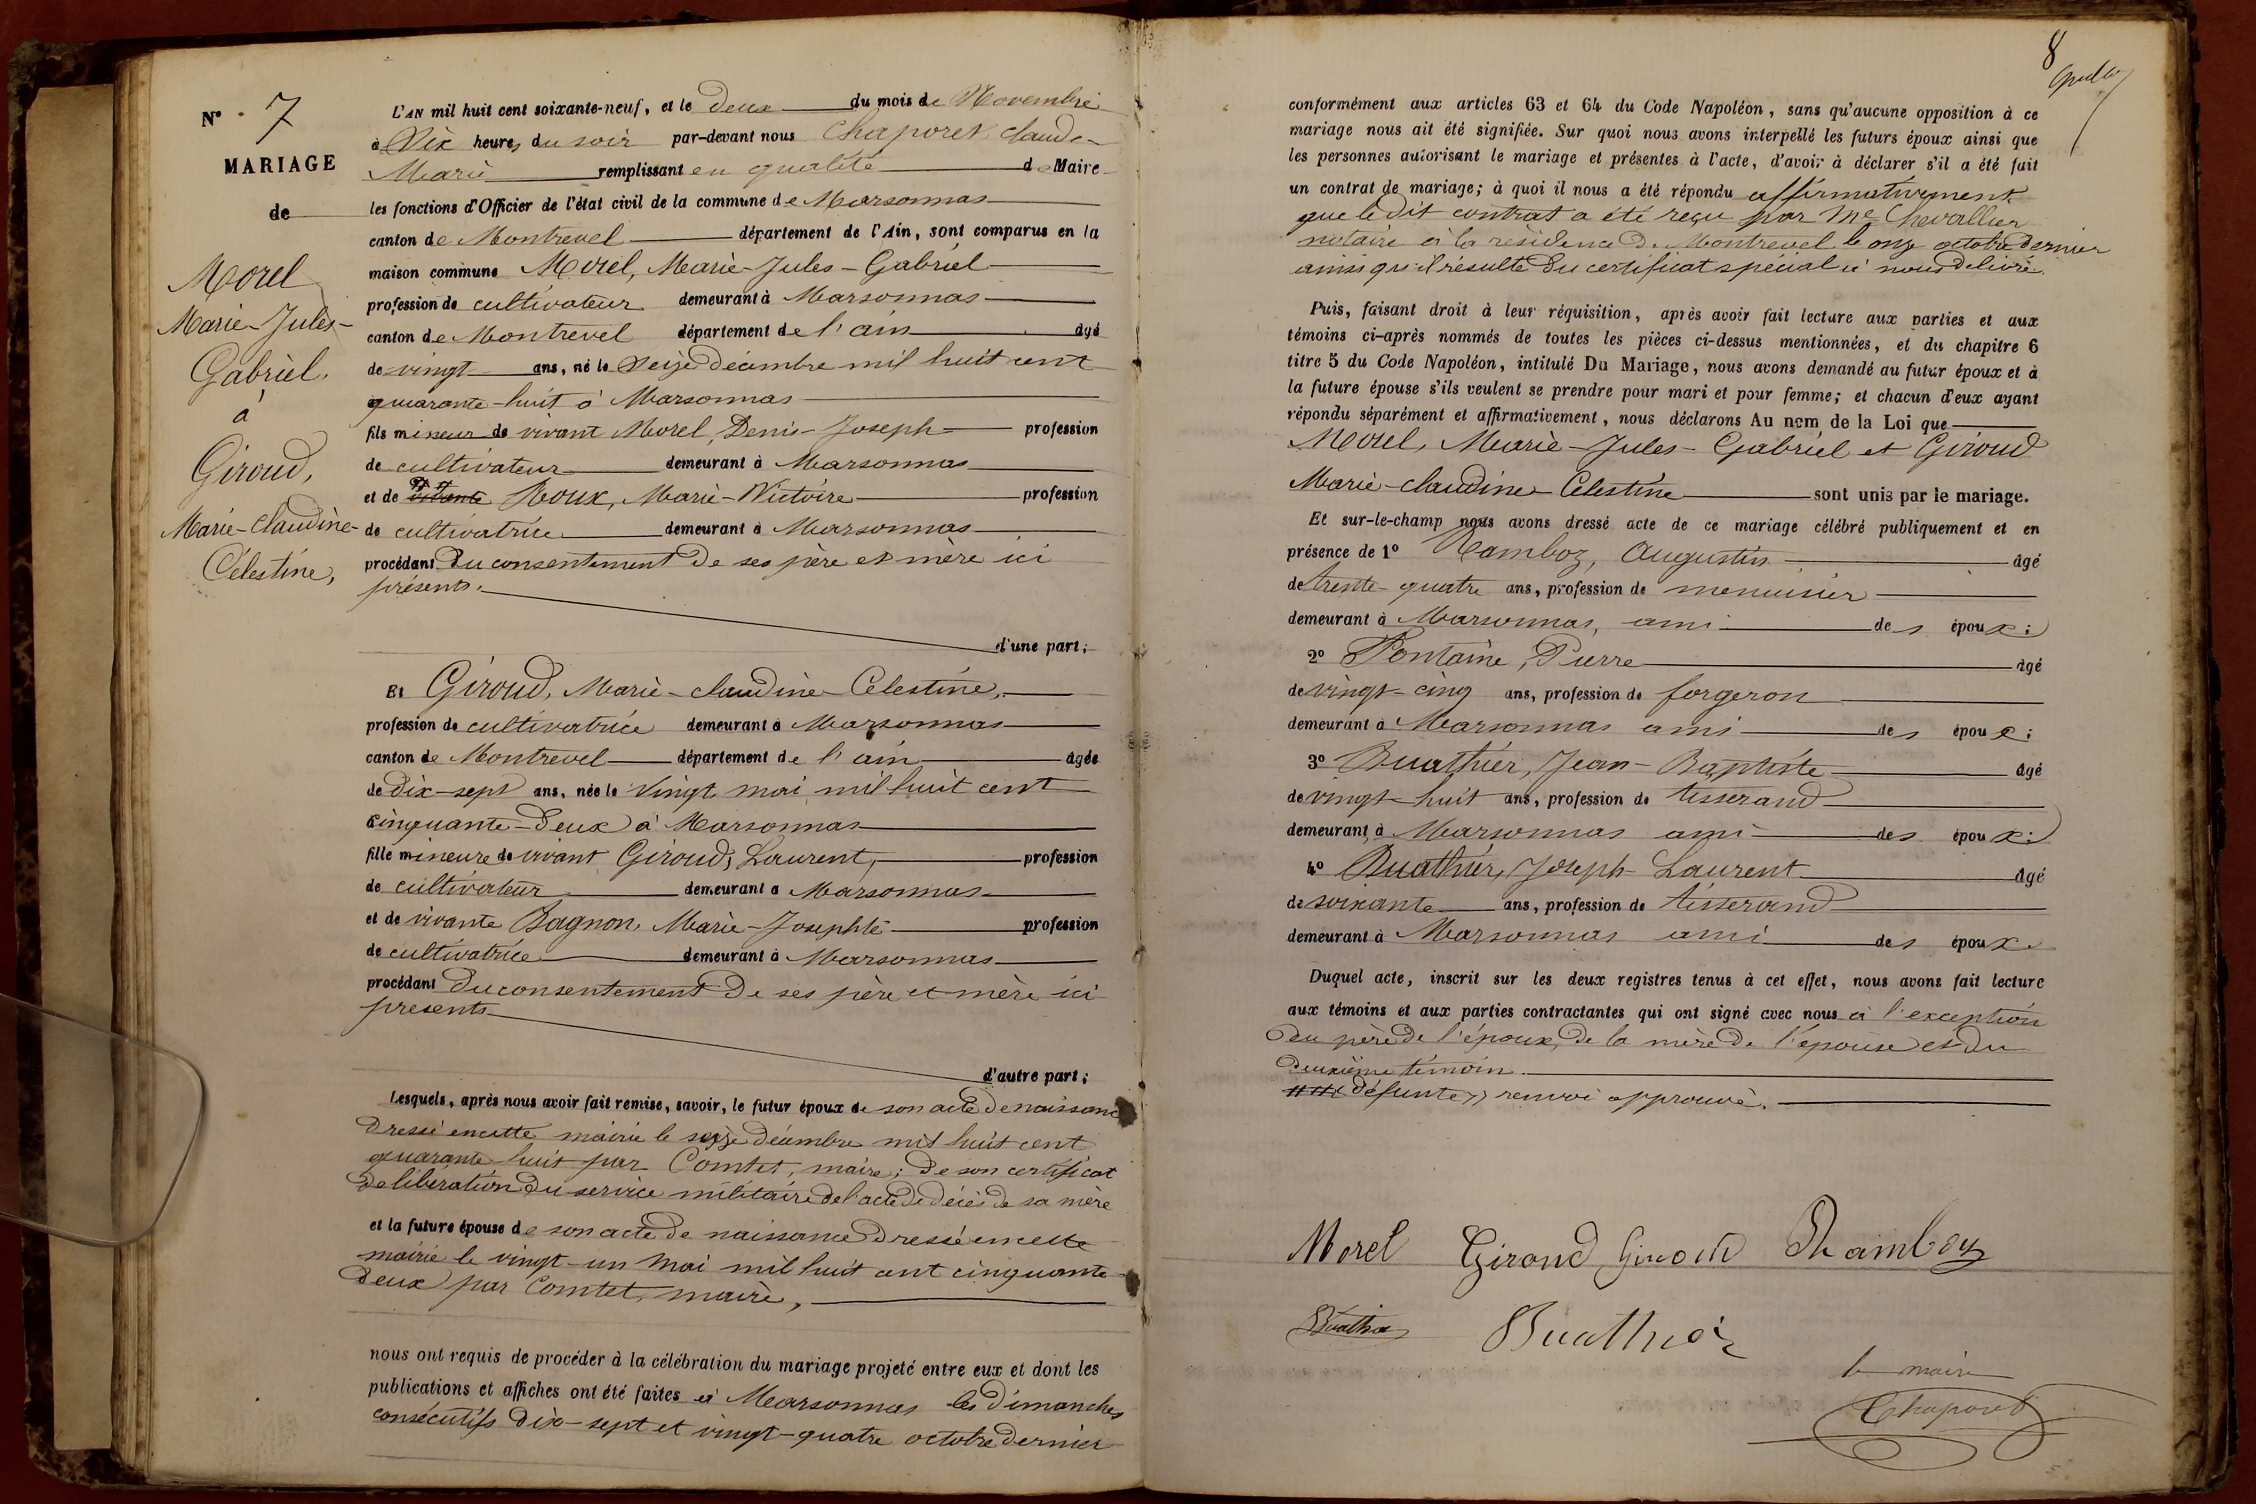 N° 7
MARIAGE
de
Morel
Marie-Jules-
Gabriel.
à
Giroud,
Marie-Claudine-
Célestine,
L'AN mil huit cent soixante-neuf, et le deux du mois de Novembre
à six heures du soir par-devant nous Chaporet Claude-
Marie remplissant en qualité de Maire
les fonctions d'Officier de l'état civil de la commune de Marsonnas
canton de Montrevel département de l'Ain, sont comparus en la
maison commune Morel, Marie-Jules-Gabriel
profession de cultivateur demeurant à Marsonnas
canton de Montrevel département de l'ain âgé
de vingt ans, né le seize décembre mil huit cent
quarante-huit à Marsonnas
fils mineur de vivant Morel, Denis-Joseph profession
de cultivateur demeurant à Marsonnas
et de vivante Roux, Marie-Victoire profession
de cultivatrice demeurant à Marsonnas
procédant du consentement de ses père et mère ici
présents.
d'une part;
Et Giroud, Marie-Claudine-Célestine,
profession de cultivatrice demeurant à Marsonnas
canton de Montrevel département de l'ain âgée
de dix-sept ans, née le vingt mai mil huit cent
cinquante-deux à Marsonnas
fille mineure de vivant Giroud, Laurent, profession
de cultivateur demeurant à Marsonnas
et de vivante Bagnon, Marie-Josephte profession
de cultivatrice demeurant à Marsonnas
procédant du consentement de ses père et mère ici
presents
d'autre part;
Lesquels, après nous avoir fait remise, savoir, le futur époux de son acte de naissance
dressé en cette mairie le seize décembre mil huit cent
quarante huit par Comtet, maire; de son certificat
de libération du service militaire de l'acte de décès de sa mère
et la future épouse de son acte de naissance dressé en cette
mairie le vingt-un mai mil huit cent cinquante-
deux par Comtet, maire,
nous ont requis de procéder à la célébration du mariage projeté entre eux et dont les
publications et affiches ont été faites à Marsonnas les dimanches
consécutifs dix-sept et vingt-quatre octobre dernier
8
conformément aux articles 63 et 64 du Code Napoléon, sans qu'aucune opposition à ce
mariage nous ait été signifiée. Sur quoi nous avons interpellé les futurs époux ainsi que
les personnes autorisant le mariage et présentes à l'acte, d'avoir à déclarer s'il a été fait
un contrat de mariage; à quoi il nous a été répondu affirmativement
que le dit contrat a été reçu par Me Chevallier
notaire à la résidence de Montrevel le onze octobre dernier
ainsi qu'il résulte du certificat spécial à nous délivré.
Puis, faisant droit à leur réquisition, après avoir fait lecture aux parties et aux
témoins ci-après nommés de toutes les pièces ci-dessus mentionnées, et du chapitre 6
titre 5 du Code Napoléon, intitulé Du Mariage, nous avons demandé au futur époux et à
la future épouse s'ils veulent se prendre pour mari et pour femme; et chacun d'eux ayant
répondu séparément et affirmativement, nous déclarons Au nom de la Loi que
Morel, Marie-Jules-Gabriel et Giroud
Marie-Claudine-Célestine sont unis par le mariage.
Et sur-le-champ nous avons dressé acte de ce mariage célébré publiquement et en
présence de 1° Ramboz, Augustin âgé
de trente-quatre ans, profession de menuisier
demeurant à Marsonnas, ami des époux;
2° Fontaine, Pierre âgé
de vingt-cinq ans, profession de forgeron
demeurant à Marsonnas ami des époux;
3° Buathier, Jean-Baptiste âgé
de vingt-huit ans, profession de tisserand
demeurant à Marsonnas ami des époux;
4° Buathier, Joseph-Laurent âgé
de soixante ans, profession de tisserand
demeurant à Marsonnas ami des époux.
Duquel acte, inscrit sur les deux registres tenus à cet effet, nous avons fait lecture
aux témoins et aux parties contractantes qui ont signé avec nous à l'exception
du père de l'époux, de la mère de l'épouse et du
deuxième témoin.
défunte » renvoi approuvé.
Morel Giroud Giroud Ramboz
Buathier Buathier
le maire
Chaporet